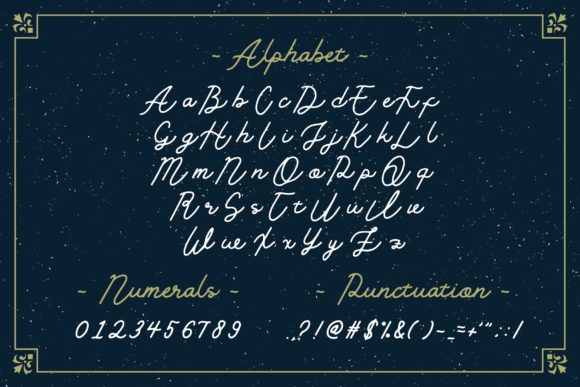 - Alphabet -
A a B b C c D d E e F f
G g H h I i J j K k L l
M m N n O o P p Q q
R r S s T t U u V v
W w X x Y y Z z
- Numerals -
0 1 2 3 4 5 6 7 8 9
- Punctuation -
.,?!@#$%&()-_=+'":;/